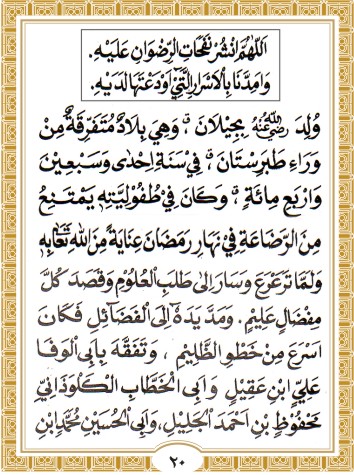 اَللّٰهُمَّ انْشُرْ نَفَحَاتِ الرِّضْوَانِ عَلَيْهِ.
وَامِدَّنَا بِالْاَسْرَارِ الَّتِيْ اَوْدَعْتَهَا لَدَيْهِ.
وُلِدَ رضي الله عنه بِجِيْلَانَ ، وَهِيَ بِلَادٌ مُتَفَرِّقَةٌ مِنْ
وَرَاءِ طَبَرِسْتَانَ ، فِيْ سَنَةِ اِحْدٰى وَسَبْعِيْنَ
وَاَرْبَعِ مِائَةٍ ، وَكَانَ فِيْ طُفُوْلِيَّتِهِ يَمْتَنِعُ
مِنَ الرَّضَاعَةِ فِيْ نَهَارِ رَمَضَانَ عِنَايَةً مِنَ اللهِ تَعَالٰى بِهِ
وَلَمَّا تَرَعْرَعَ وَسَارَ اِلٰى طَلَبِ الْعُلُوْمِ وَقَصَدَ كُلَّ
مِفْضَالٍ عَلِيْمٍ . وَمَدَّ يَدَهُ اِلَى الْفَضَآئِلِ فَكَانَ
اَسْرَعَ مِنْ خَطْوِ الظَّلِيْمِ ، وَتَفَقَّهَ بِاَبِي الْوَفَا
عَلِيِّ ابْنِ عَقِيْلٍ وَاَبِى الْخَطَّابِ الْكَلْوَذَانِيِّ
مَحْفُوْظِ بْنِ اَحْمَدَ الْجَلِيْلِ، وَاَبِى الْحُسَيْنِ مُحَمَّدِ ابْنِ
٢٠